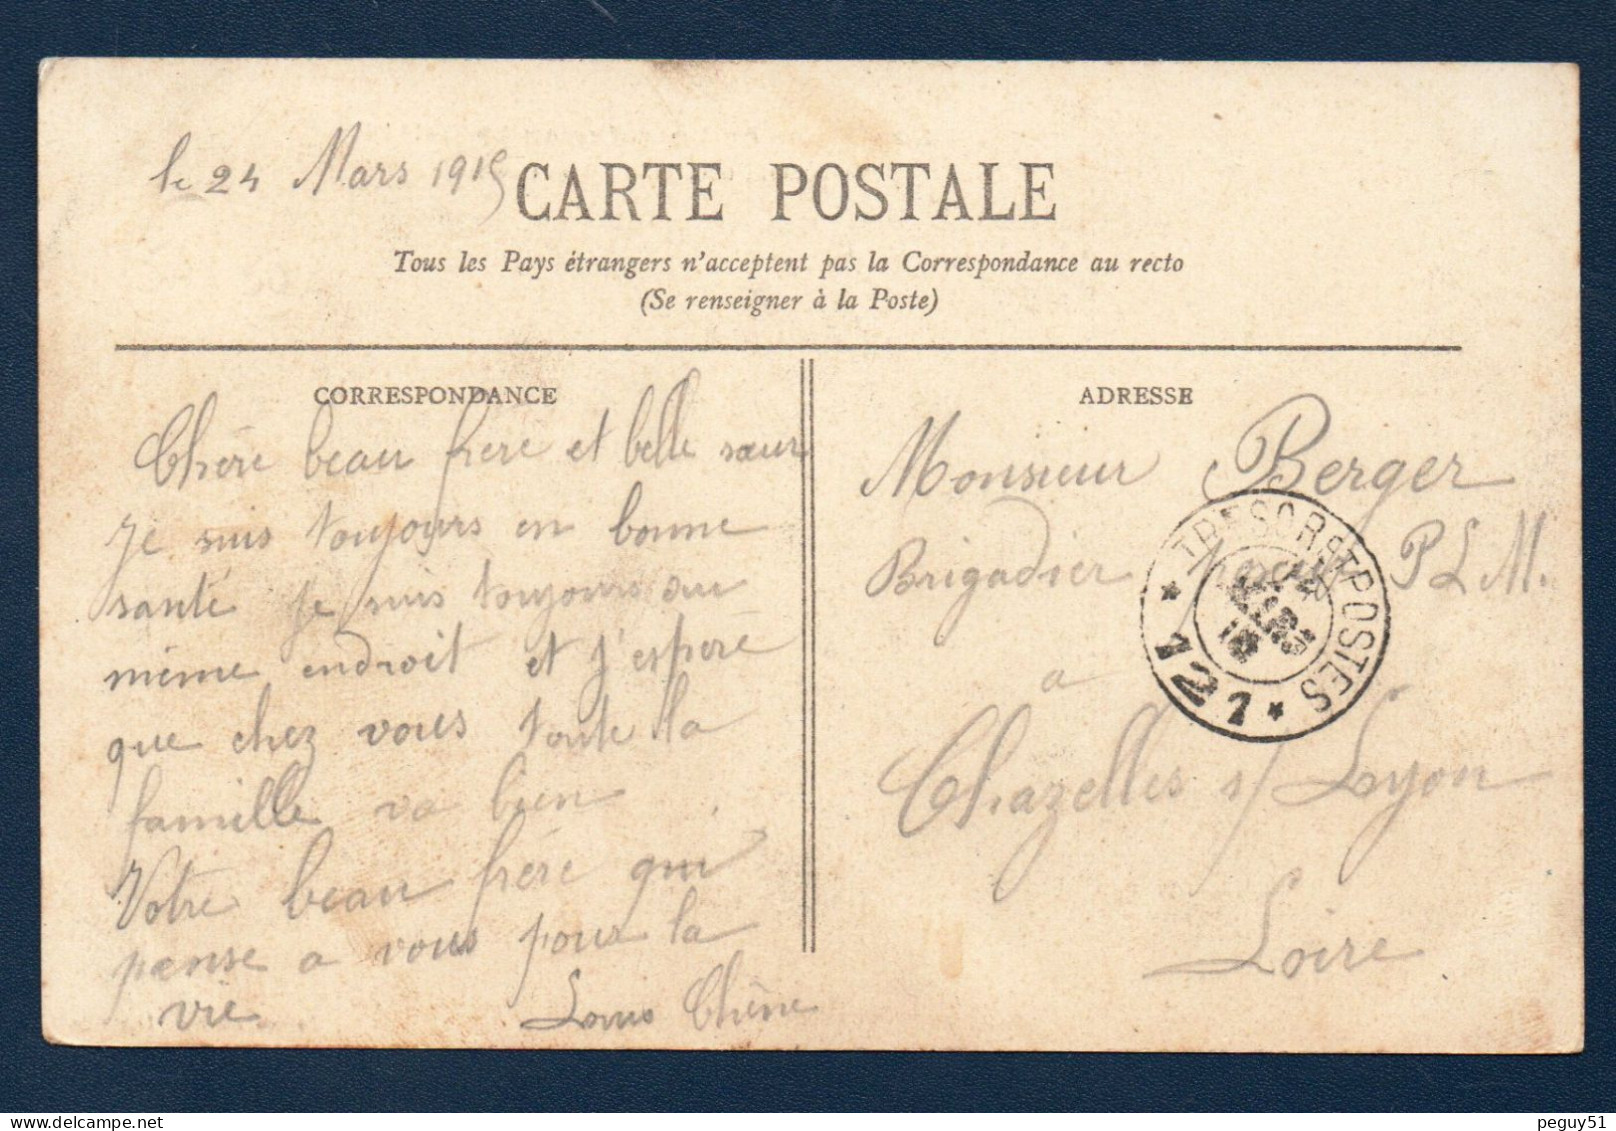 le 24 Mars 1915
CARTE POSTALE
Tous les Pays étrangers n'acceptent pas la Correspondance au recto
(Se renseigner à la Poste)
CORRESPONDANCE
Chère beau frère et belle sœur
Je suis toujours en bonne
santé je suis toujours au
même endroit et j'espère
que chez vous toute la
famille va bien
Votre beau frère qui
pense a vous pour la
vie
Louis Chêne
ADRESSE
Monsieur Berger
Brigadier P L M.
a
Chazelles s/ Lyon
Loire
TRESOR ET POSTES
* 121 *
peguy51